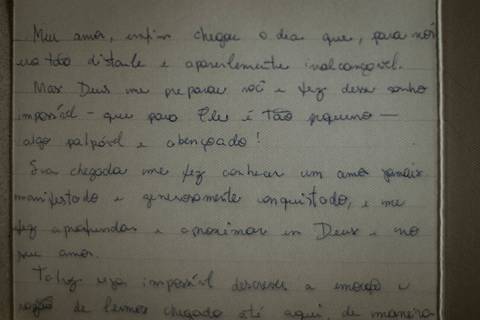 Meu amor, enfim chegou o dia que, para nós
era tão distante e aparentemente inalcançável.
Mas Deus me preparou você e fez desse sonho
impossível - que para Ele é tão pequeno -
algo palpável e abençoado!
Sua chegada me fez conhecer um amor jamais
manifestado e generosamente conquistado, e me
fez aprofundar e aproximar em Deus e no
seu amor.
Talvez seja impossível descrever a emoção e
razão de termos chegado até aqui, de maneira